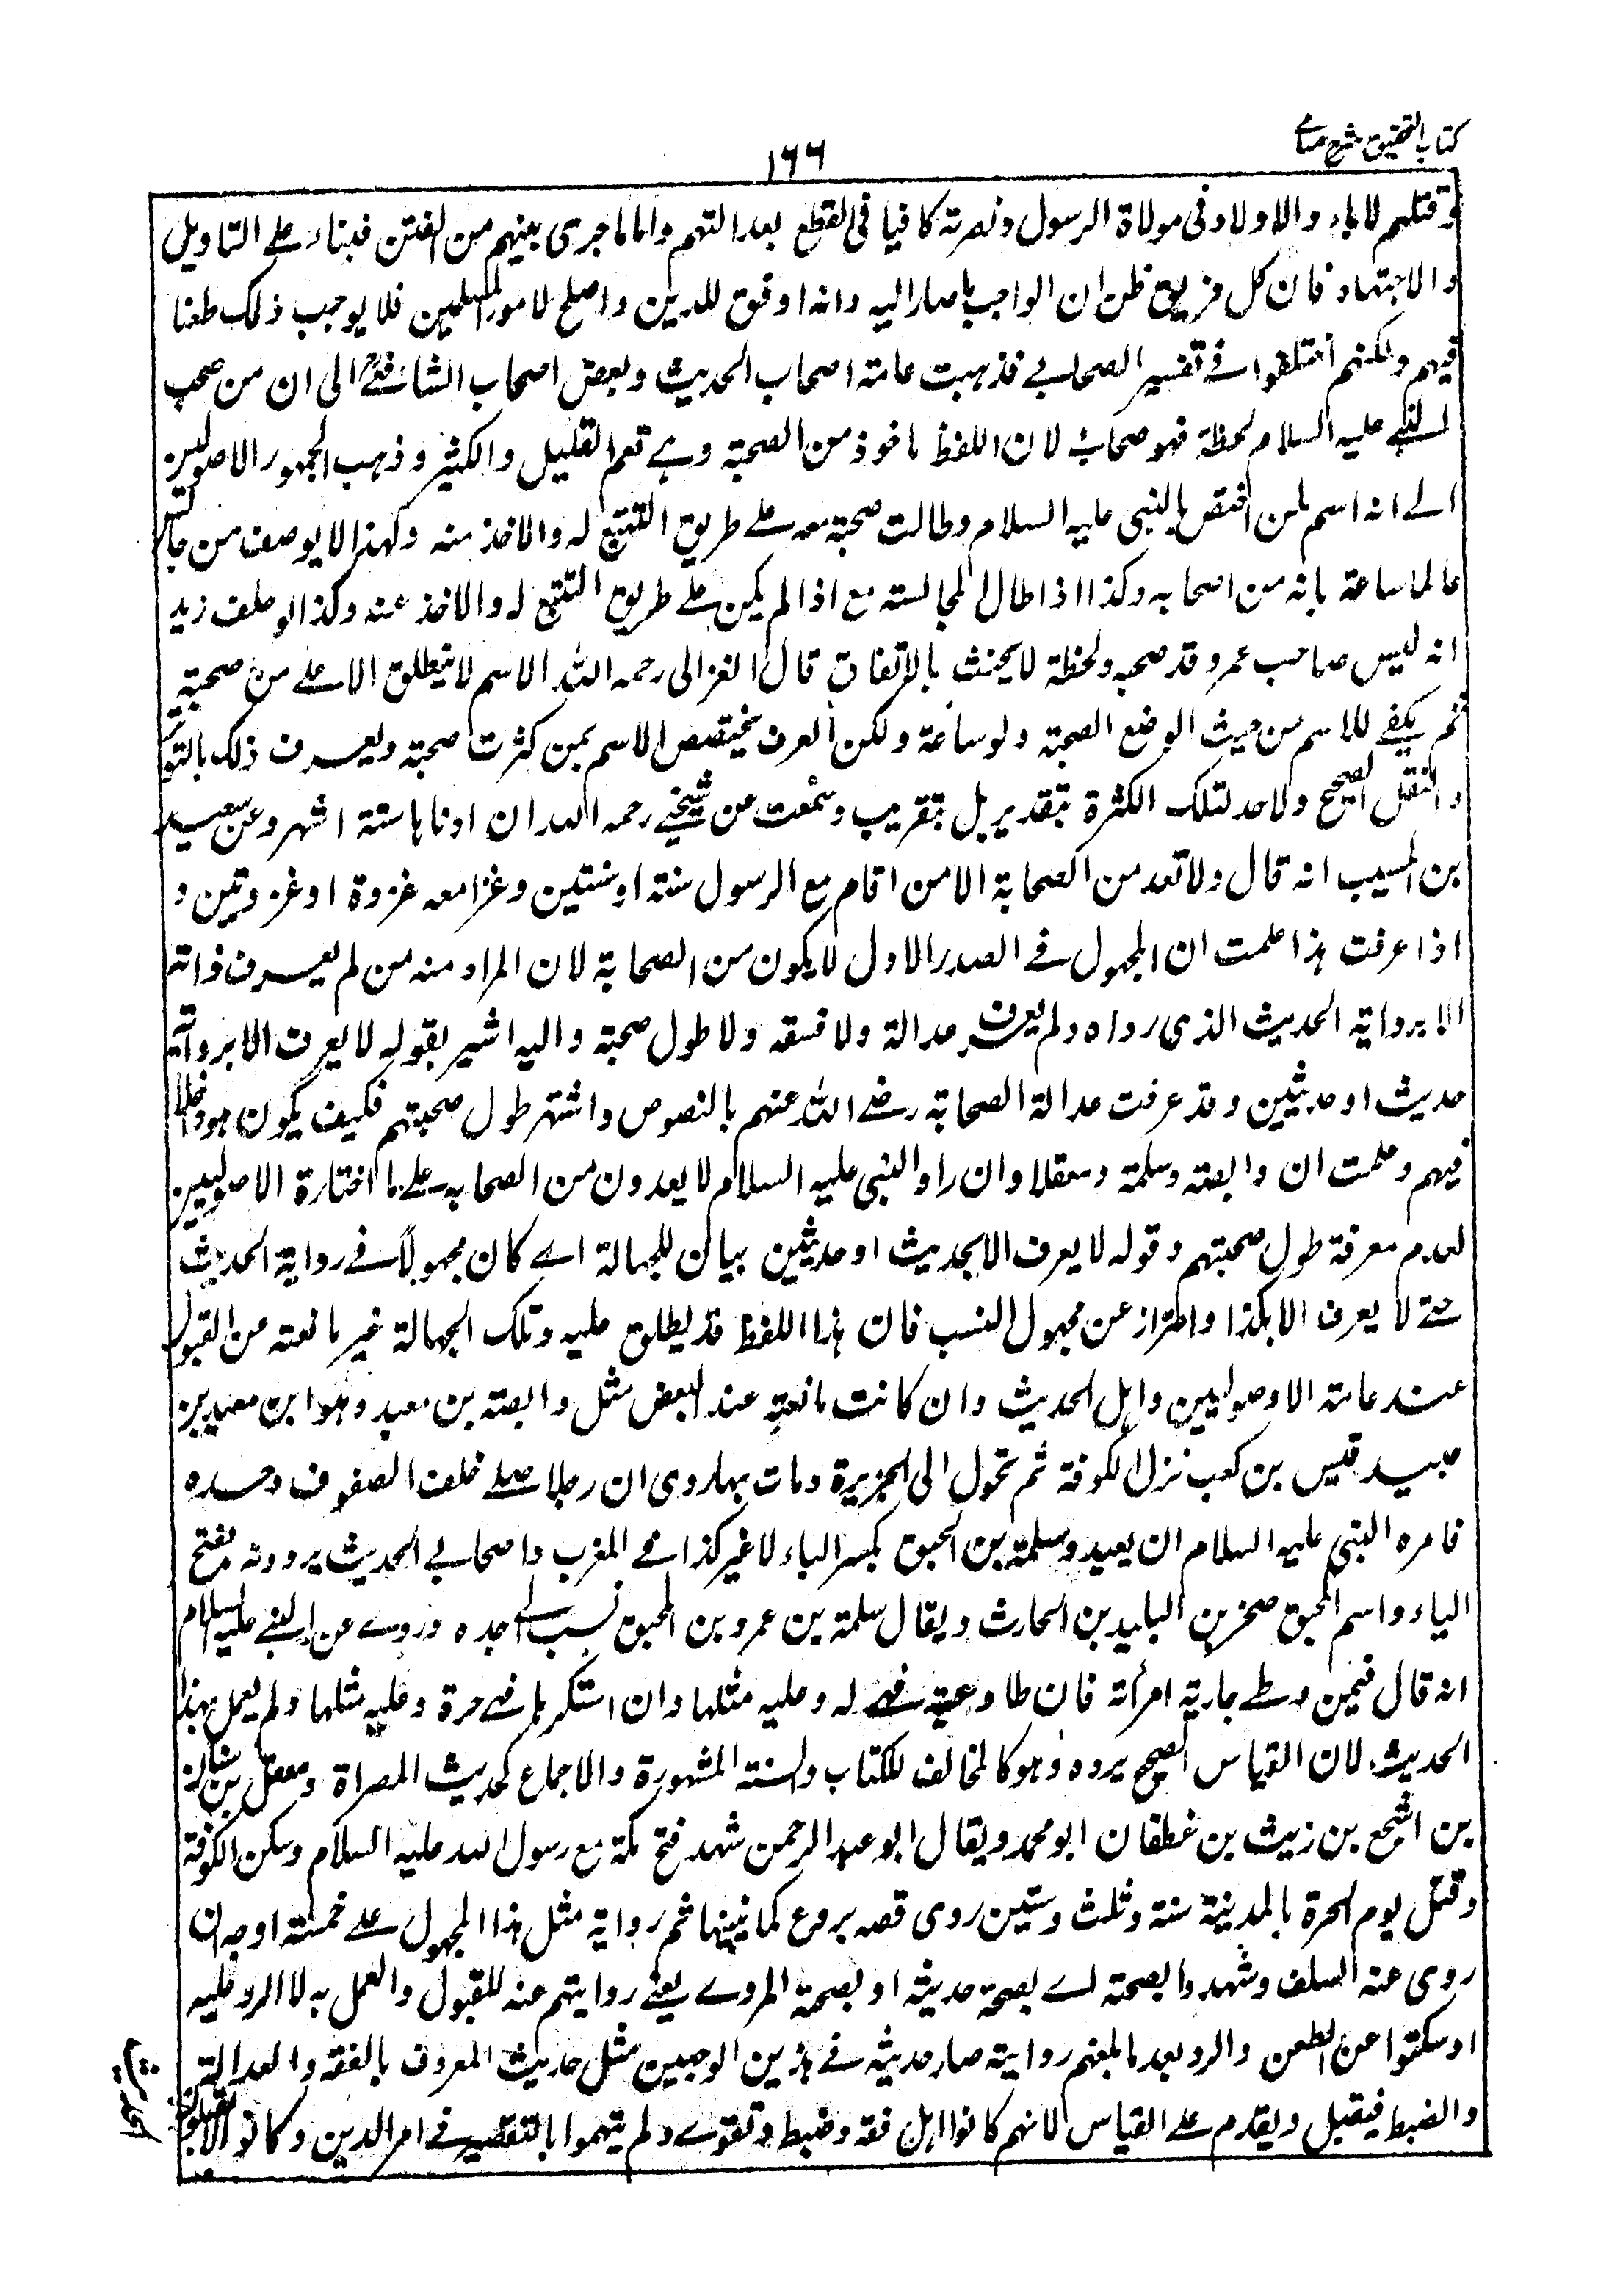 كتاب التحقيق شرح حسامي
١٦٦
وقتلهم لاباء والاولاد فى مولاة الرسول ونصرته كافيا فى القطع بعدالتهم واما ما جرى بينهم من الفتن فبناء على التاويل
والاجتهاد فان كل فريق ظن ان الواجب ما صار اليه وانه اوفق للدين واصلح لامور المسلمين فلا يوجب ذلك طعنا
فيهم ولكنهم اختلفوا في تفسير الصحابي فذهبت عامة اصحاب الحديث وبعض اصحاب الشافعي الى ان من صحب
النبي عليه السلام لحظة فهو صحابي لان اللفظ ماخوذ من الصحبة وهي تعم القليل والكثير وذهب الجمهور الاصوليين
الى انه اسم لمن اختص بالنبى عليه السلام وطالت صحبته معه على طريق التتبع له والاخذ منه ولهذا لا يوصف من جالس
عالما ساعة بانه من اصحابه وكذا اذا طال المجالسته مع اذا لم يكن على طريق التتبع له والاخذ عنه وكذا لو حلف زيد
انه ليس صاحب عمرو قد صحبه ولحظة لا يحنث بالاتفاق قال الغزالى رحمه الله الاسم لا ينطلق الا على من صحبته
ثم يكفي للاسم من حيث الوضع الصحبة ولو ساعة ولكن العرف يختصص الاسم بمن كثرت صحبته ويعرف ذلك بالتواتر
والنقل الصحيح ولا حد لتلك الكثرة بتقدير بل بتقريب وسمعت عن شيخي رحمه الله ان ادناها ستة اشهر وعن سعيد
بن المسيب انه قال ولا تعد من الصحابة الا من اقام مع الرسول سنة او سنتين وغزا معه غزوة او غزوتين و
اذا عرفت هذا علمت ان المجهول في الصدر الاول لا يكون من الصحابة لان المراد منه من لم يعرف ذاته
الا برواية الحديث الذى رواه ولم يعرف عدالة ولا فسقه ولا طول صحبة واليه اشير بقوله لا يعرف الا برواية
حديث او حديثين وقد عرفت عدالة الصحابة رضي الله عنهم بالنصوص واشتهر طول صحبتهم فكيف يكون هو داخلا
فيهم وعلمت ان وابصة وسلمة ومعقلا وان راو النبى عليه السلام لا يعدون من الصحابه على ما اختارة الاصوليين
لعدم معرفة طول صحبتهم وقوله لا يعرف الا بحديث او حديثين بيان للجهالة اي كان مجهولا في رواية الحديث
حتى لا يعرف الا بكذا واحتراز عن مجهول النسب فان هذا اللفظ قد يطلق عليه وتلك الجهالة غير مانعة من القبول
عند عامة الاوصوليين واهل الحديث وان كانت مانعة عند البعض مثل وابصة بن معبد وهو ابن معبد بن
عبيد قيس بن كعب نزل الكوفة ثم تحول الى الجزيرة ومات بها روى ان رجلا صلى خلف الصفوف وحده
فامره النبى عليه السلام ان يعيد وسلمة بن المحبق بكسر الباء لا غير كذا في المغرب واصحابي الحديث يروونه بفتح
الباء واسم المحبق صخر بن البليد بن الحارث ويقال سلمة بن عمرو بن المحبق نسب الى جده وروى عن النبي عليه السلام
انه قال فيمن وطي جارية امرأته فان طاوعته فهي له وعليه مثلها وان استكرهها فهي حرة وعليه مثلها ولم يعمل بهذا
الحديث لان القياس الصحيح يرده وهو كالمخالف للكتاب والسنة المشهورة والاجماع كحديث المصراة ومعقل بن سنان
بن اشجع بن زيث بن غطفان ابو محمد ويقال ابو عبد الرحمن شهد فتح مكة مع رسول الله عليه السلام وسكن الكوفة
وقتل يوم الحرة بالمدينة سنة وثلث وستين روى قصه بروع كما نبينها ثم رواية مثل هذا المجهول على خمسة اوجه ان
روى عنه السلف وشهدوا بصحته اي بصحة حديثه او بصحة المروي يعني روايتهم عنه للقبول والعمل به لا الرد عليه
او سكتوا عن الطعن والرد بعد ما بلغهم روايته صار حديثه في هذين الوجهين مثل حديث المعروف بالفقه والعدالة
والضبط فيقبل ويقدم على القياس لانهم كانوا اهل فقه وضبط وتقوى ولم يتهموا بالتقصير في امر الدين وكانوا لا يقبلون